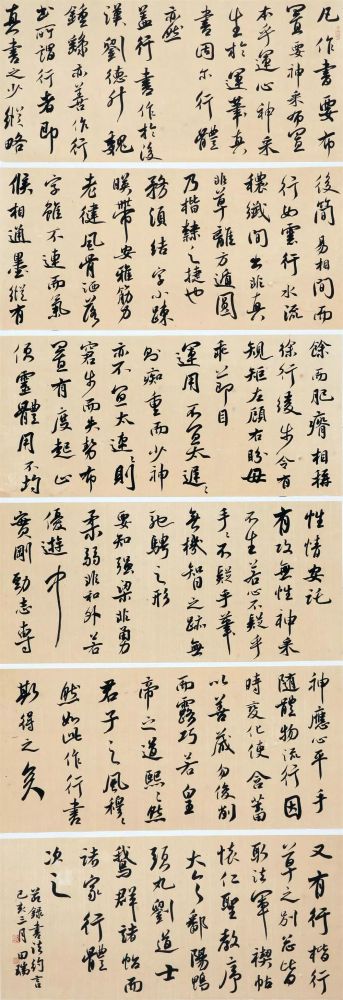 凡作書要布
置要神采布置
本乎運心神采
生於運筆真
書固尔行體
亦然
盖行書作於後
漢劉德升魏
鍾繇亦善作行
書所謂行者即
真書之少縱略
後簡易相間而
行如雲行水流
穠纖間出非真
非草離方遁圓
乃楷隸之捷也
務須結字小踈
暎帶安雅筋力
老健風骨洒落
字雖不連而氣
候相通墨縱有
餘而肥瘠相稱
徐行緩步令有
規矩左顧右盼毋
乖節目
運用不宜太遲〻
則癡重而少神
亦不宜太速〻則
窘步而失勢布
置有度起止
便靈體用不均
性情安託
有攻無性神采
不生若心不疑乎
手〻不疑乎筆
無機智之跡無
馳騁之形
要知強梁非勇
柔弱非和外若
優遊中
實剛勁志專
神應心平手
隨體物流行因
時變化使含蓄
以善藏勿峻削
而露巧若皇
帝之道熙〻然
君子之風穆〻
然如此作行書
斯得之矣
又有行楷行
草之別總皆
取法軍禊帖
懷仁聖教序
大令鄱陽鴨
頭丸劉道士
鵝群諸帖而
諸家行體
次之
節錄書法約言
己亥三月田瑞